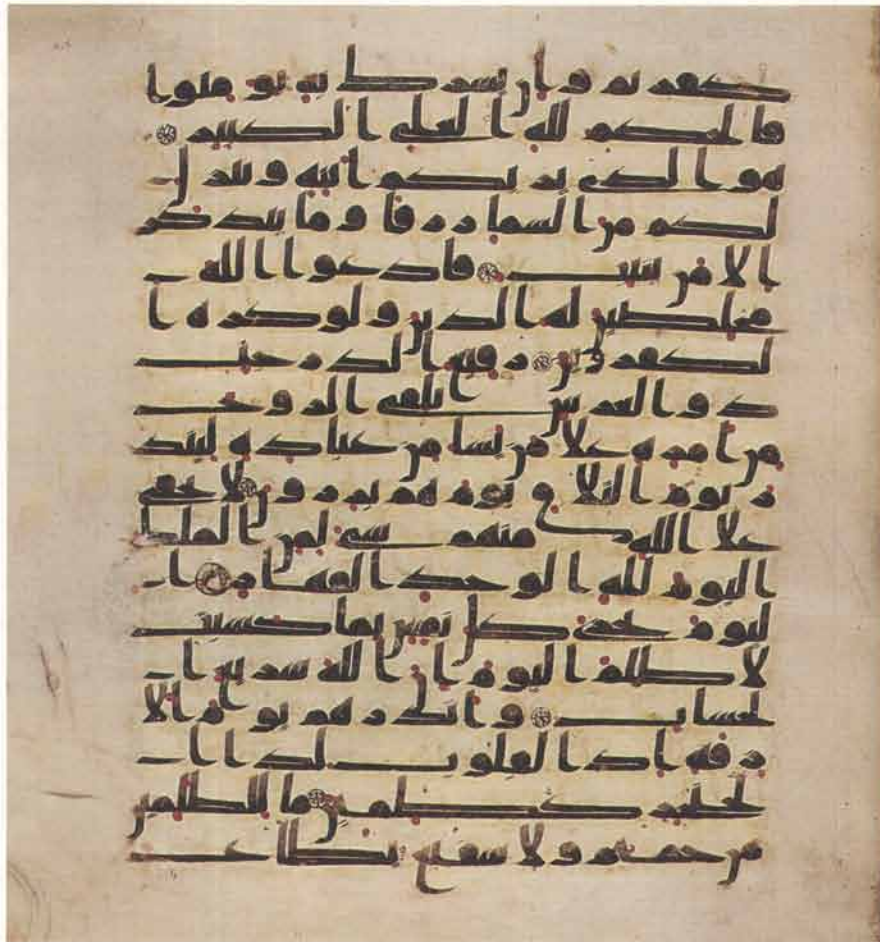 كفرتم وان يشرك به تومنوا
فالحكم لله العلي الكبير
هو الذي يريكم ايته وينزل
لكم من السما رزقا وما يتذكر
الا من ينيب فادعوا الله
مخلصين له الدين ولو كره ا
لكفرون رفيع الدرجت
ذو العرش يلقي الروح
من امره علا من يشا من عباده لينذ
ر يوم التلاق يوم هم برزون لا يخفى
علا الله منهم شي لمن الملك
اليوم لله الوحد القهار ا
ليوم تجزى كل نفس بما كسبت
لا ظلم اليوم ان الله سريع ا
لحساب وانذرهم يوم الا
زفة اذ القلوب لدا ا
لحناجر كظمين ما للظلمين
من حميم ولا شفيع يطاع